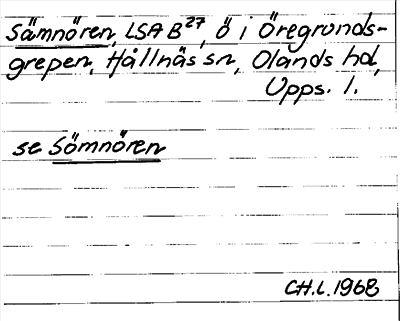 Sämnören, LSA B27, ö i Öregrunds-
grepen, Hållnäs sn, Olands hd,
Upps. l.
se Sömnören
CH.L. 1968